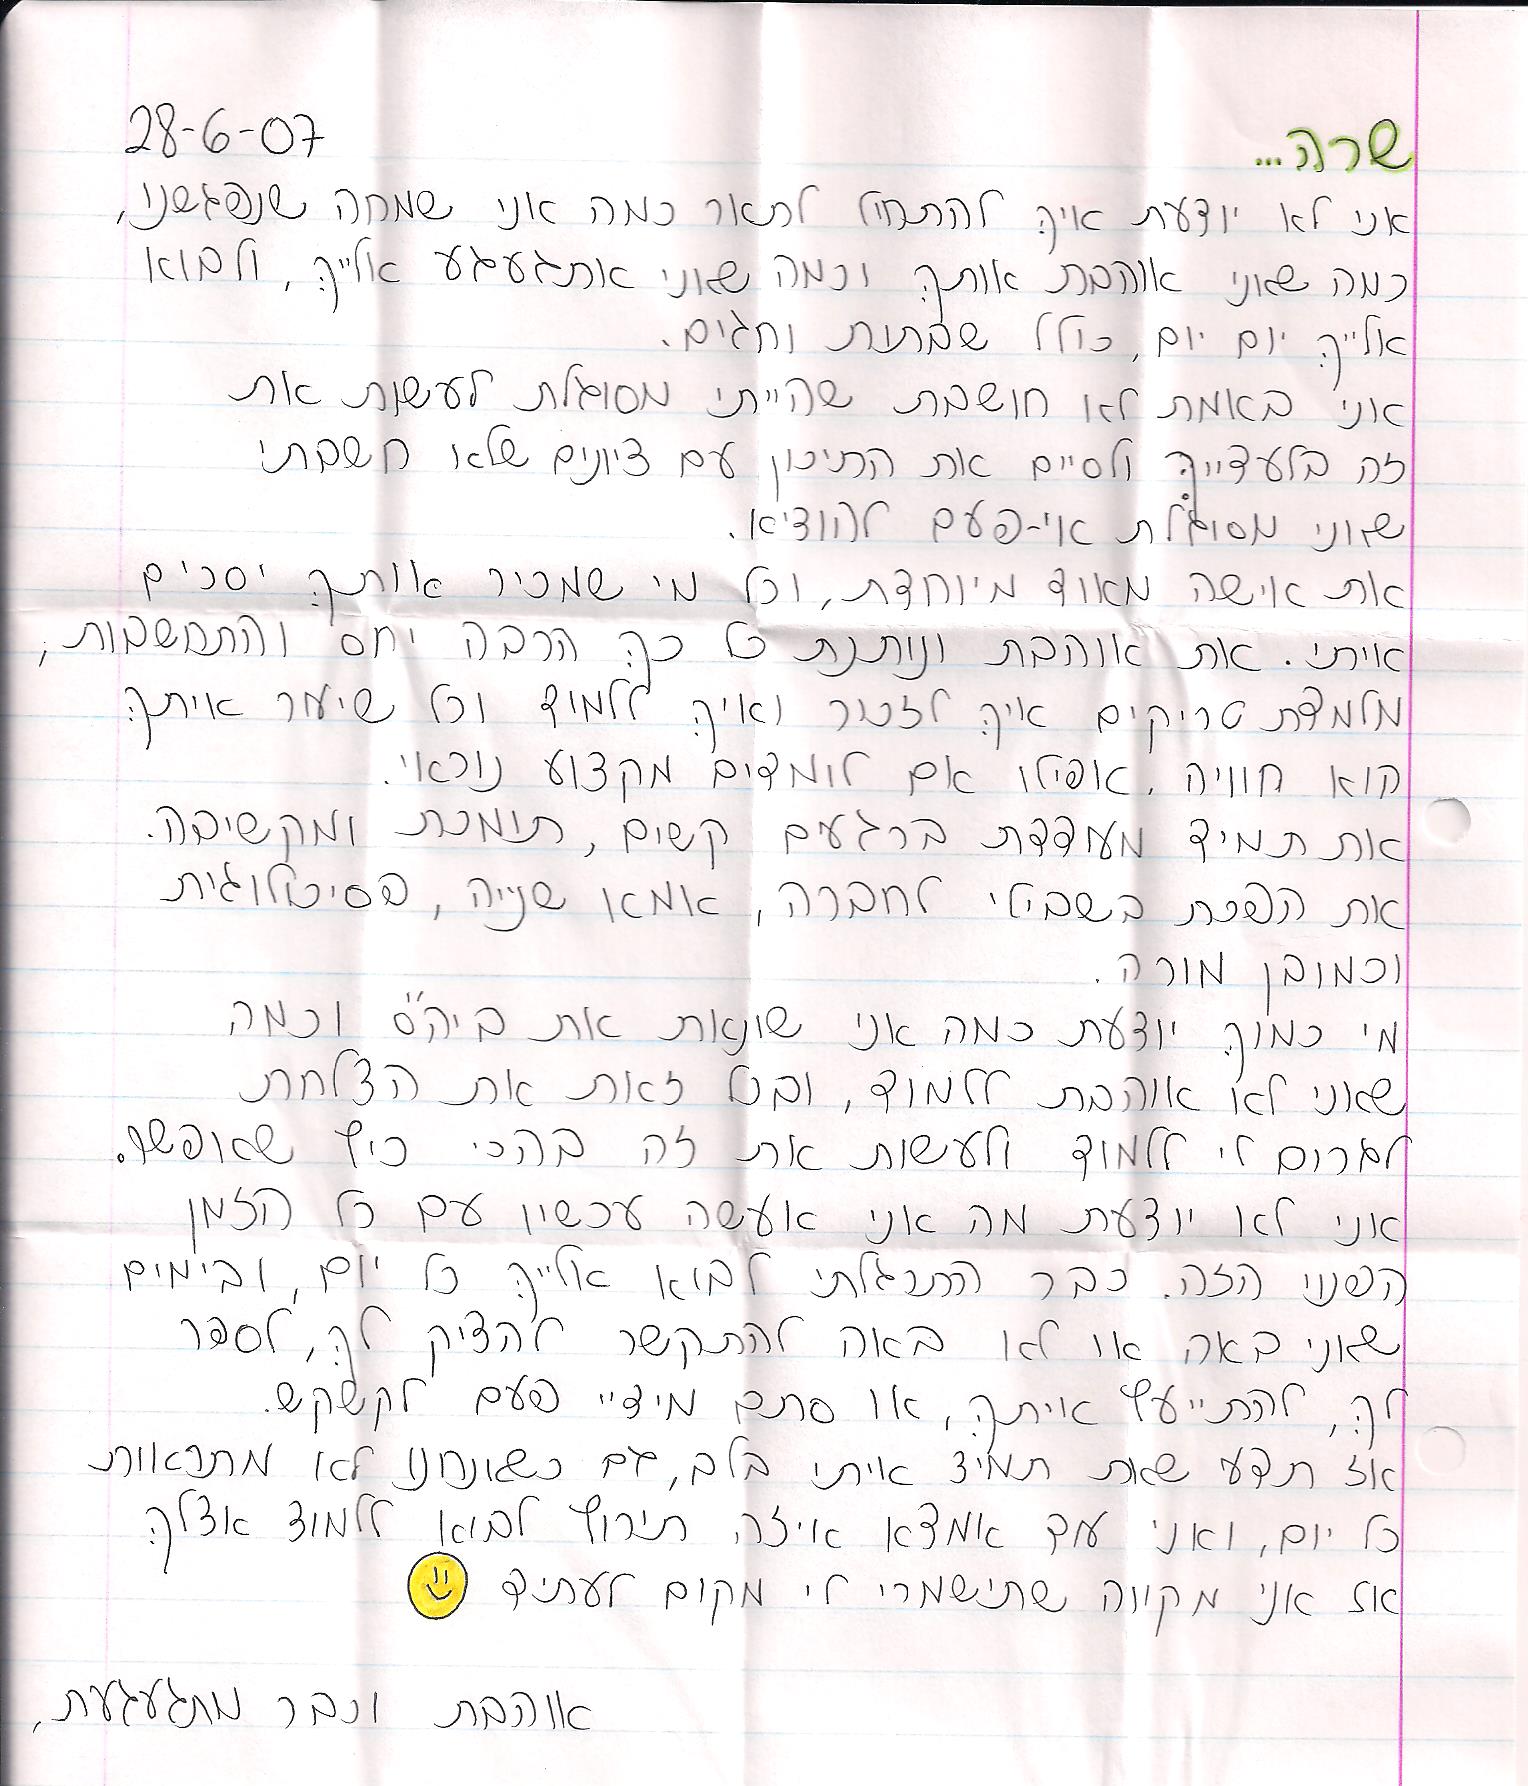 28-6-07
שרה...
אני לא יודעת איך להתחיל לתאר כמה אני שמחה שנפגשנו,
כמה שאני אוהבת אותך וכמה שאני אתגעגע אלייך, ולבוא
אלייך יום יום, כולל שבתות וחגים.
אני באמת לא חושבת שהייתי מסוגלת לעשות את
זה בלעדייך ולסיים את התיכון עם ציונים שלא חשבתי
שאני מסוגלת אי-פעם להוציא.
את אישה מאוד מיוחדת, וכל מי שמכיר אותך יסכים
איתי. את אוהבת ונותנת כל כך הרבה יחס והתחשבות,
מלמדת טריקים איך לזכור ואיך ללמוד וכל שיעור איתך
הוא חוויה. אפילו אם לומדים מקצוע נוראי.
את תמיד מעודדת ברגעים קשים, תומכת ומקשיבה.
את הפכת בשבילי לחברה, אמא שנייה, פסיכולוגית
וכמובן מורה.
מי כמוך יודעת כמה אני שונאת את ביה"ס וכמה
שאני לא אוהבת ללמוד, ובכל זאת את הצלחת
לגרום לי ללמוד ולעשות את זה בהכי כיף שאפשר.
אני לא יודעת מה אני אעשה עכשיו עם כל הזמן
הפנוי הזה. כבר התרגלתי לבוא אלייך כל יום, ובימים
שאני באה או לא באה להתקשר להציק לך, לספר
לך, להתייעץ איתך, או סתם מידיי פעם לקשקש.
אז תדעי שאת תמיד איתי בלב, גם כשאנחנו לא מתראות
כל יום, ואני עוד אמצא איזה תירוץ לבוא ללמוד אצלך
אז אני מקווה שתישמרי לי מקום לעתיד
אוהבת וכבר מתגעגעת,